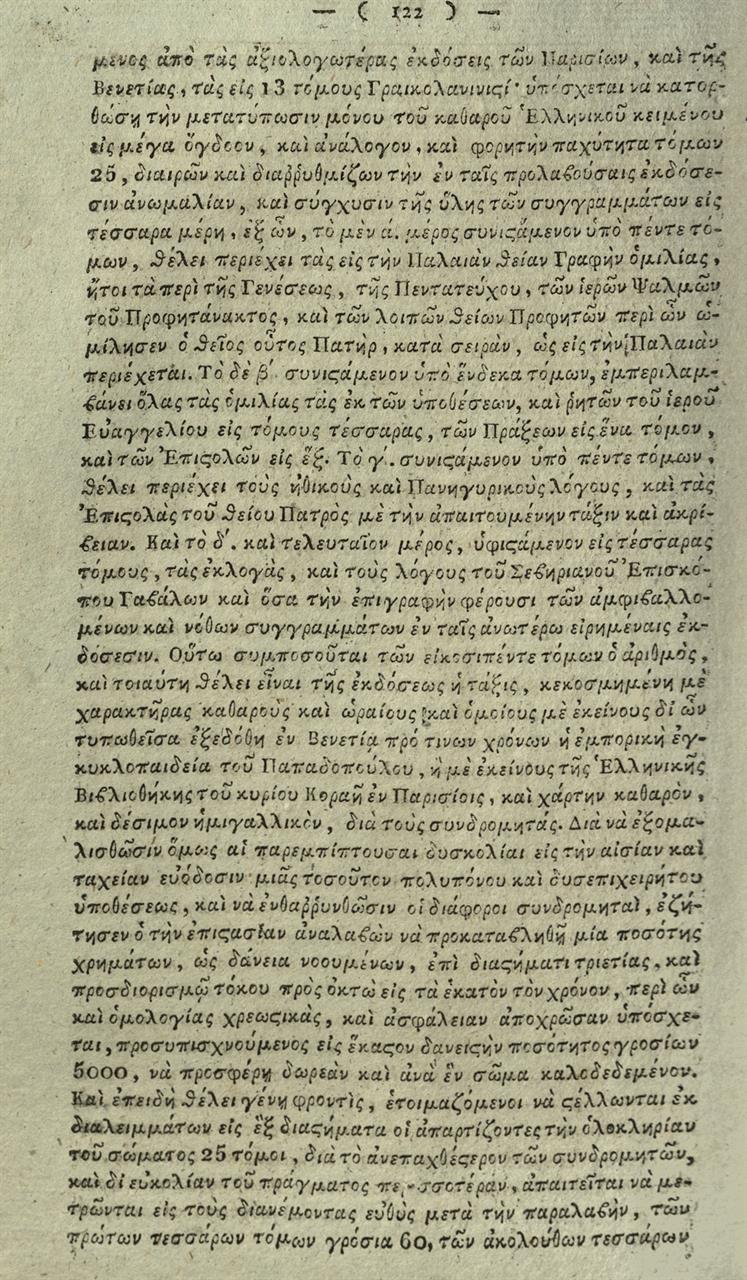 — ( 122 ) —
μενος ἀπὸ τὰς ἀξιολογωτέρας ἐκδόσεις τῶν Παρισίων, καὶ τῆς
Βενετίας, τὰς εἰς 13 τόμους Γραικολανινιςί· ὑπόσχεται νὰ κατορ-
θώσῃ τὴν μετατύπωσιν μόνου τοῦ καθαροῦ Ἑλληνικοῦ κειμένου
εἰς μέγα ὄγδοον, καὶ ἀνάλογον, καὶ φορητὴν παχύτητα τόμων
25, διαιρῶν καὶ διαῤῥυθμίζων τὴν ἐν ταῖς προλαβούσαις ἐκδόσε-
σιν ἀνωμαλίαν, καὶ σύγχυσιν τῆς ὕλης τῶν συγγραμμάτων εἰς
τέσσαρα μέρη, ἐξ ὧν, τὸ μὲν ά. μέρος συνιςάμενον ὑπὸ πέντε τό-
μων, θέλει περιέχει τὰς εἰς τὴν Παλαιὰν θείαν Γραφὴν ὁμιλίας,
ἤτοι τὰ περὶ τῆς Γενέσεως, τῆς Πεντατεύχου, τῶν ἱερῶν Ψαλμῶν
τοῦ Προφητάνακτος, καὶ τῶν λοιπῶν θείων Προφητῶν περὶ ὧν ὡ-
μίλησεν ὁ θεῖος οὗτος Πατὴρ, κατὰ σειρὰν, ὡς εἰς τὴν Παλαιὰν
περιέχεται. Τὸ δὲ β΄ συνιςάμενον ὑπὸ ἕνδεκα τόμων, ἐμπεριλαμ-
βάνει ὅλας τὰς ὁμιλίας τὰς ἐκ τῶν ὑποθέσεων, καὶ ῥητῶν τοῦ ἱεροῦ
Εὐαγγελίου εἰς τόμους τέσσαρας, τῶν Πράξεων εἰς ἕνα τόμον,
καὶ τῶν Ἐπιςολῶν εἰς ἕξ. Τὸ γ΄. συνιςάμενον ὑπὸ πέντε τόμων,
θέλει περιέχει τοὺς ἠθικοὺς καὶ Πανηγυρικοὺς λόγους, καὶ τὰς
Ἐπιςολὰς τοῦ θείου Πατρὸς μὲ τὴν ἀπαιτουμένην τάξιν καὶ ἀκρί-
βειαν. Καὶ τὸ δ΄. καὶ τελευταῖον μέρος, ὑφιςάμενον εἰς τέσσαρας
τόμους, τὰς ἐκλογὰς, καὶ τοὺς λόγους τοῦ Σεβηριανοῦ Ἐπισκό-
που Γαβάλων καὶ ὅσα τὴν ἐπιγραφὴν φέρουσι τῶν ἀμφιβαλλο-
μένων καὶ νόθων συγγραμμάτων ἐν ταῖς ἀνωτέρω εἰρημέναις ἐκ-
δόσεσιν. Οὕτω συμποσοῦται τῶν εἰκοσιπέντε τόμων ὁ ἀριθμὸς,
καὶ τοιαύτη θέλει εἶναι τῆς ἐκδόσεως ἡ τάξις, κεκοσμημένη μὲ
χαρακτῆρας καθαροὺς καὶ ὡραίους καὶ ὁμοίους μὲ ἐκείνους δι ὧν
τυπωθεῖσα ἐξεδόθη ἐν Βενετίᾳ πρό τινων χρόνων ἡ ἐμπορικὴ ἐγ-
κυκλοπαιδεία τοῦ Παπαδοπούλου, ἢ μὲ ἐκείνους τῆς Ἑλληνικῆς
Βιβλιοθήκης τοῦ κυρίου Κοραῆ ἐν Παρισίοις, καὶ χάρτην καθαρὸν,
καὶ δέσιμον ἡμιγαλλικὸν, διὰ τοὺς συνδρομητάς. Διὰ νὰ ἐξομα-
λισθῶσιν ὅμως αἱ παρεμπίπτουσαι δυσκολίαι εἰς τὴν αἰσίαν καὶ
ταχείαν εὐόδοσιν μιᾶς τοσοῦτον πολυπόνου καὶ δυσεπιχειρήτου
ὑποθέσεως, καὶ νὰ ἐνθαῤῥυνθῶσιν οἱ διάφοροι συνδρομηταὶ, ἐζή-
τησεν ὁ τὴν ἐπιςασίαν ἀναλαβὼν νὰ προκαταβληθῇ μία ποσότης
χρημάτων, ὡς δάνεια νοουμένων, ἐπὶ διαςήματι τριετίας, καὶ
προσδιορισμῷ τόκου πρὸς ὀκτὼ εἰς τὰ ἑκατὸν τὸν χρόνον, περὶ ὧν
καὶ ὁμολογίας χρεωςικὰς, καὶ ἀσφάλειαν ἀποχρῶσαν ὑπόσχε-
ται, προσυπισχνούμενος εἰς ἕκαςον δανειςὴν ποσότητος γροσίων
5000, νὰ προσφέρῃ δωρεὰν καὶ ἀνὰ ἓν σῶμα καλοδεδεμένον.
Καὶ ἐπειδὴ θέλει γένῃ φροντὶς, ἑτοιμαζόμενοι νὰ ςέλλωνται ἐκ
διαλειμμάτων εἰς ἓξ διαςήματα οἱ ἀπαρτίζοντες τὴν ὁλοκληρίαν
τοῦ σώματος 25 τόμοι, διὰ τὸ ἀνεπαχθέςερον τῶν συνδρομητῶν,
καὶ δι εὐκολίαν τοῦ πράγματος περισσοτέραν, ἀπαιτεῖται νὰ με-
τρῶνται εἰς τοὺς διανέμοντας εὐθὺς μετὰ τὴν παραλαβὴν, τῶν
πρώτων τεσσάρων τόμων γρόσια 60, τῶν ἀκολούθων τεσσάρων